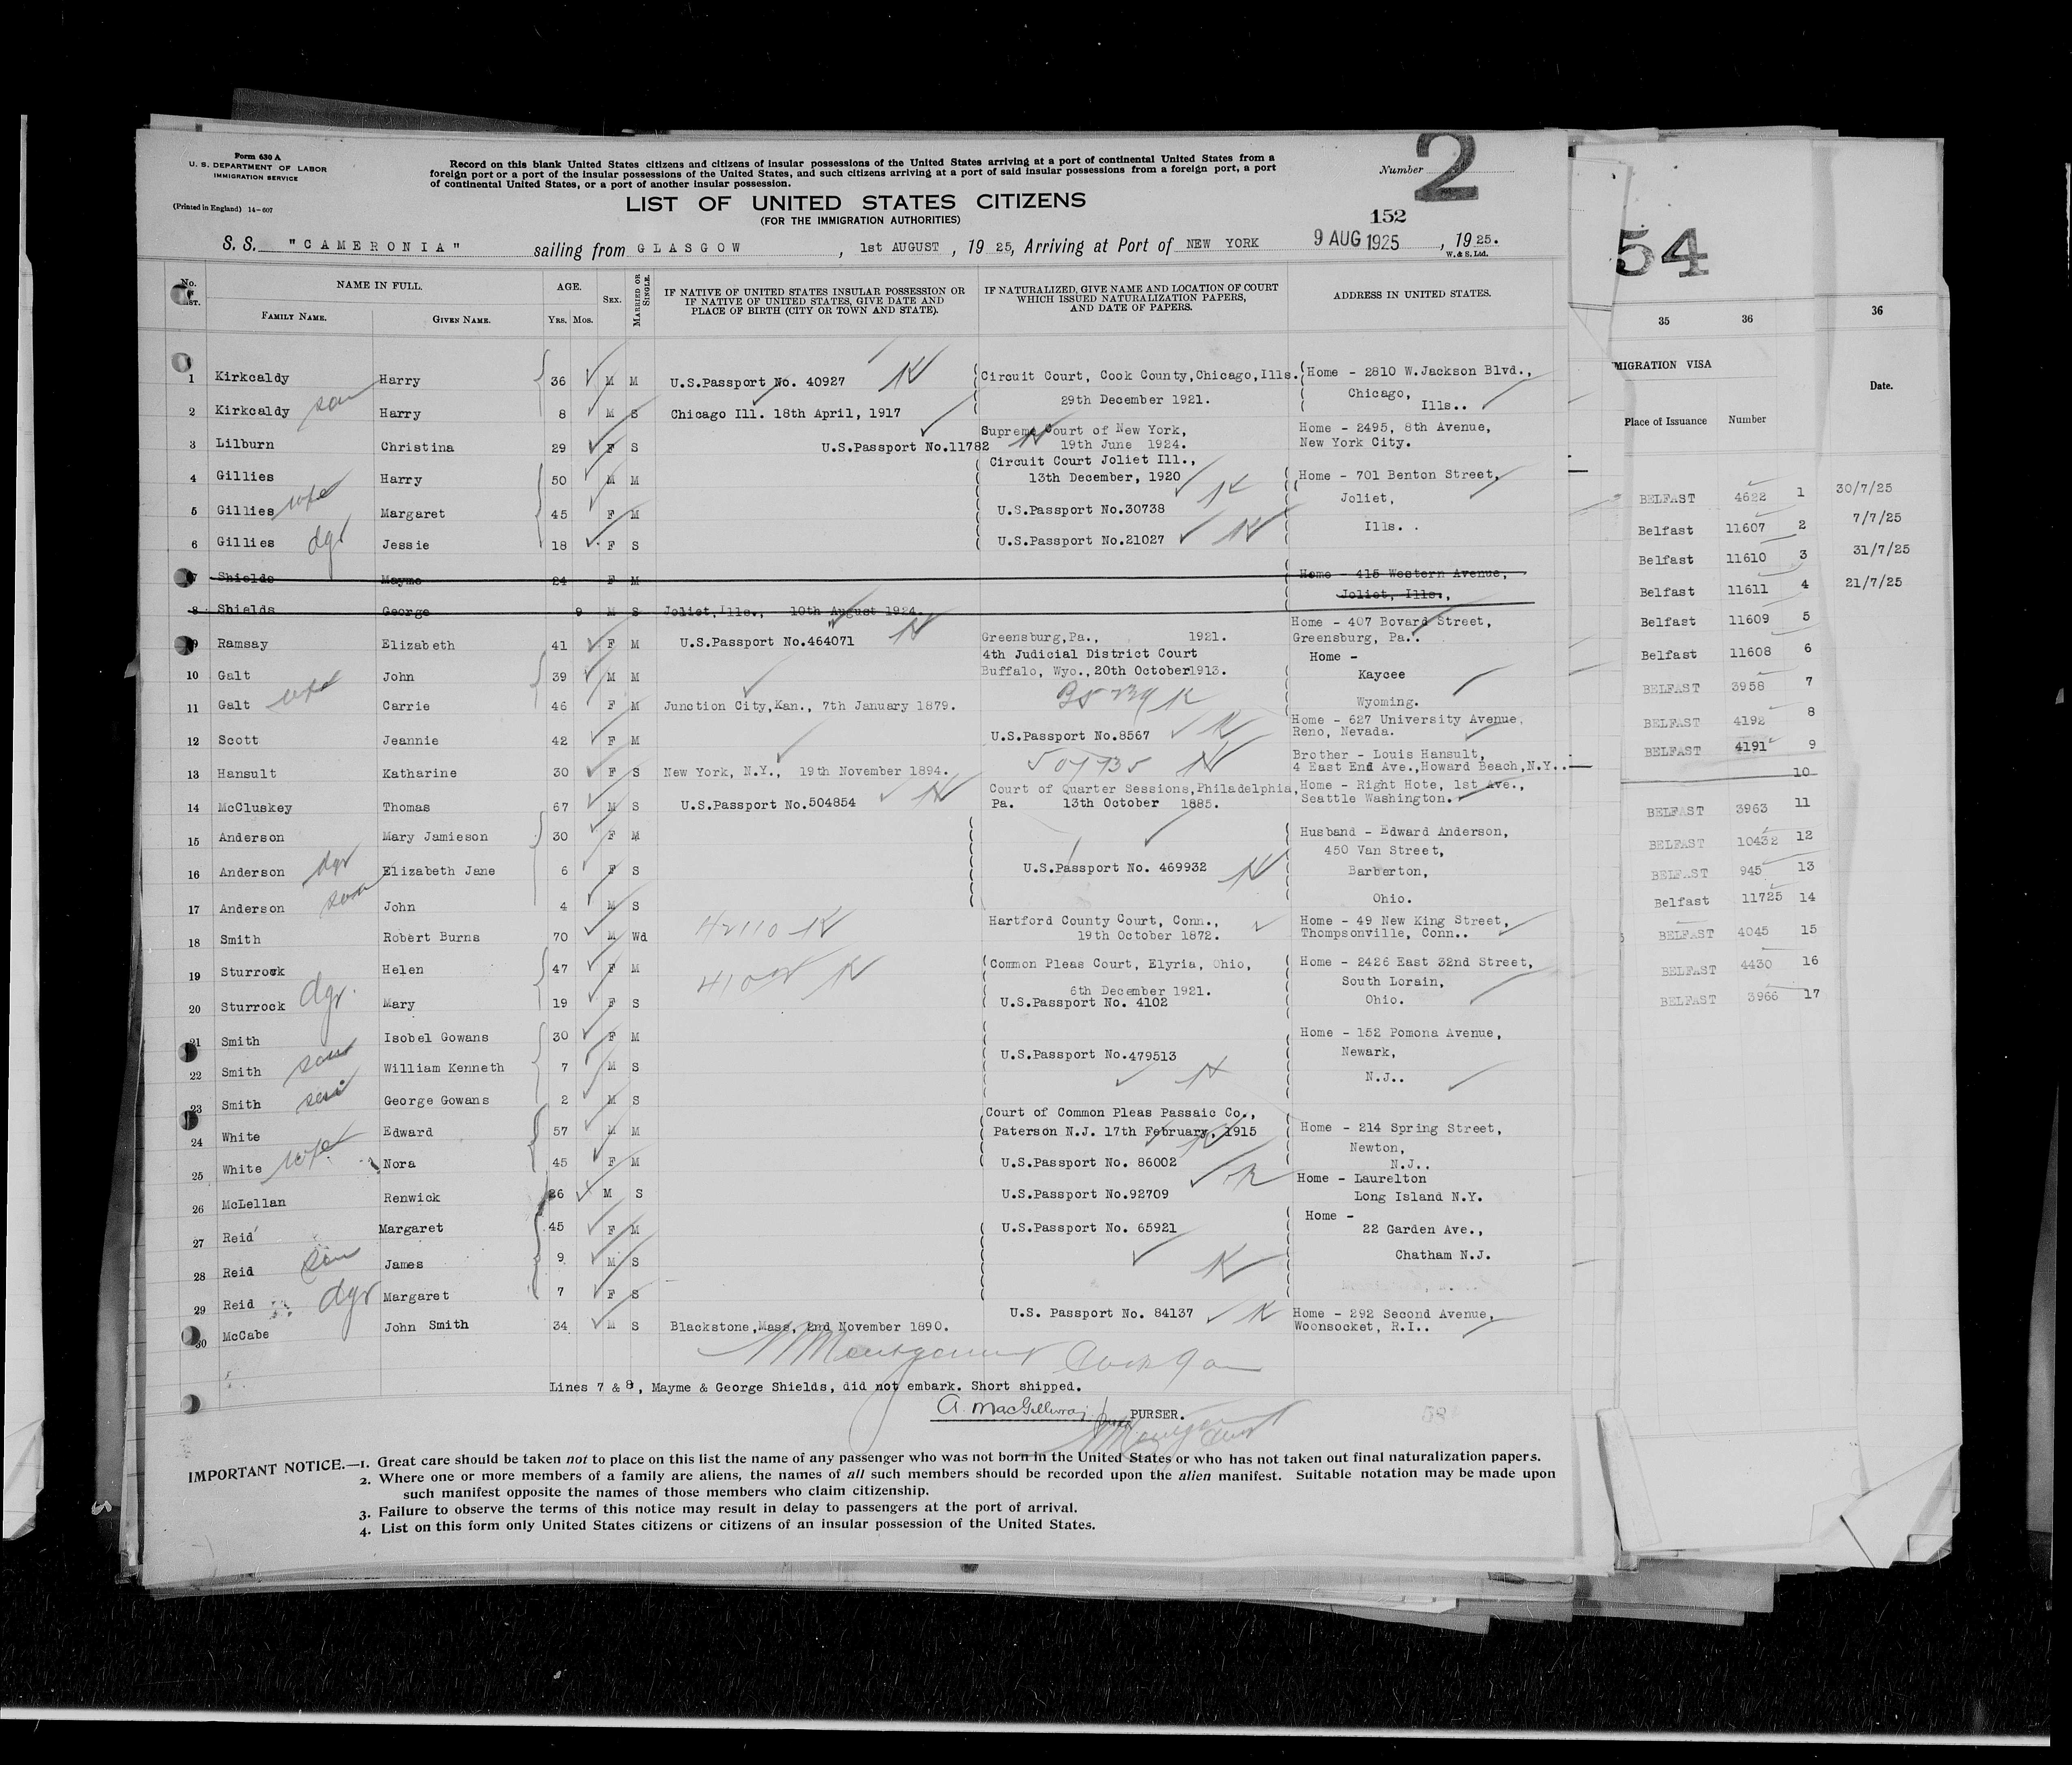 Form 630 A
U. S. DEPARTMENT OF LABOR
IMMIGRATION SERVICE
(Printed in England) 14-607
Record on this blank United States citizens and citizens of insular possessions of the United States arriving at a port of continental United States from a
foreign port or a port of the insular possessions of the United States, and such citizens arriving at a port of said insular possessions from a foreign port, a port
of continental United States, or a port of another insular possession.
Number 2
LIST OF UNITED STATES CITIZENS
(FOR THE IMMIGRATION AUTHORITIES)
152
S. S. "CAMERONIA" sailing from GLASGOW, 1st AUGUST, 1925, Arriving at Port of NEW YORK 9 AUG 1925, 1925.
W. & S. Ltd.
NAME IN FULL. AGE. SEX. MARRIED OR SINGLE. IF NATIVE OF UNITED STATES INSULAR POSSESSION OR IF NATIVE OF UNITED STATES, GIVE DATE AND PLACE OF BIRTH (CITY OR TOWN AND STATE). IF NATURALIZED, GIVE NAME AND LOCATION OF COURT WHICH ISSUED NATURALIZATION PAPERS, AND DATE OF PAPERS. ADDRESS IN UNITED STATES.
No. FAMILY NAME. GIVEN NAME. YRS. MOS.
1 Kirkcaldy Harry 36 M M U.S.Passport No. 40927 Circuit Court, Cook County,Chicago,Ills. Home - 2810 W.Jackson Blvd.,
29th December 1921. Chicago,
2 Kirkcaldy son Harry 8 M S Chicago Ill. 18th April, 1917 Ills..
3 Lilburn Christina 29 F S U.S.Passport No.11782 Supreme Court of New York, 19th June 1924. Home - 2495, 8th Avenue, New York City.
4 Gillies Harry 50 M M Circuit Court Joliet Ill., 13th December, 1920 Home - 701 Benton Street,
5 Gillies wife Margaret 45 F M U.S.Passport No.30738 Joliet,
6 Gillies dgr Jessie 18 F S U.S.Passport No.21027 Ills. .
7 Shields Mayme 24 F M Home - 415 Western Avenue, Joliet, Ills.,
8 Shields George 9 M S Joliet,Ills., 10th August 1924.
9 Ramsay Elizabeth 41 F M U.S.Passport No.464071 Greensburg,Pa., 1921. Home - 407 Bovard Street, Greensburg, Pa..
10 Galt John 39 M M 4th Judicial District Court Buffalo, Wyo.,20th October1913. Home - Kaycee
11 Galt wife Carrie 46 F M Junction City,Kan., 7th January 1879. Wyoming.
12 Scott Jeannie 42 F M U.S.Passport No.8567 Home - 627 University Avenue, Reno, Nevada.
13 Hansult Katharine 30 F S New York, N.Y., 19th November 1894. Brother - Louis Hansult, 4 East End Ave.,Howard Beach,N.Y..
14 McCluskey Thomas 67 M S U.S.Passport No.504854 Court of Quarter Sessions,Philadelphia, Pa. 13th October 1885. Home - Right Hote, 1st Ave., Seattle Washington.
15 Anderson Mary Jamieson 30 F M Husband - Edward Anderson, 450 Van Street,
16 Anderson dgr Elizabeth Jane 6 F S U.S.Passport No. 469932 Barberton,
17 Anderson son John 4 M S Ohio.
18 Smith Robert Burns 70 M Wd 42110 Hartford County Court, Conn., 19th October 1872. Home - 49 New King Street, Thompsonville, Conn..
19 Sturrock Helen 47 F M Common Pleas Court, Elyria, Ohio, 6th December 1921. Home - 2426 East 32nd Street, South Lorain,
20 Sturrock dgr. Mary 19 F S U.S.Passport No. 4102 Ohio.
21 Smith Isobel Gowans 30 F M Home - 152 Pomona Avenue,
22 Smith son William Kenneth 7 M S U.S.Passport No.479513 Newark,
N.J..
23 Smith son George Gowans 2 M S
24 White Edward 57 M M Court of Common Pleas Passaic Co., Paterson N.J. 17th February, 1915 Home - 214 Spring Street,
25 White wife Nora 45 F M U.S.Passport No. 86002 Newton, N.J..
26 McLellan Renwick 26 M S U.S.Passport No.92709 Home - Laurelton Long Island N.Y.
27 Reid Margaret 45 F M U.S.Passport No. 65921 Home - 22 Garden Ave.,
28 Reid son James 9 M S Chatham N.J.
29 Reid dgr Margaret 7 F S
30 McCabe John Smith 34 M S Blackstone,Mass, 2nd November 1890. U.S. Passport No. 84137 Home - 292 Second Avenue, Woonsocket, R.I..
Lines 7 & 8, Mayme & George Shields, did not embark. Short shipped.
A. MacGillivray PURSER.
IMPORTANT NOTICE.—1. Great care should be taken not to place on this list the name of any passenger who was not born in the United States or who has not taken out final naturalization papers.
2. Where one or more members of a family are aliens, the names of all such members should be recorded upon the alien manifest. Suitable notation may be made upon
such manifest opposite the names of those members who claim citizenship.
3. Failure to observe the terms of this notice may result in delay to passengers at the port of arrival.
4. List on this form only United States citizens or citizens of an insular possession of the United States.
54
35 36 36
MIGRATION VISA
Date.
Place of Issuance Number
BELFAST 4622 1 30/7/25
Belfast 11607 2 7/7/25
Belfast 11610 3 31/7/25
Belfast 11611 4 21/7/25
Belfast 11609 5
Belfast 11608 6
BELFAST 3958 7
BELFAST 4192 8
BELFAST 4191 9
10
BELFAST 3963 11
BELFAST 10432 12
BELFAST 945 13
Belfast 11725 14
BELFAST 4045 15
BELFAST 4430 16
BELFAST 3966 17